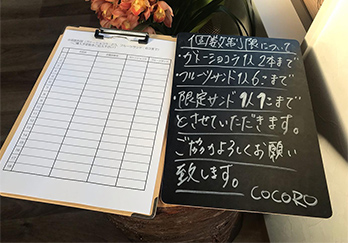 個数制限について
・ガトーショコラ1人2本まで
・フルーツサンド1人6こまで
・限定サンド1人1こまで
とさせていただきます。
ご協力よろしくお願い
致します。
COCORO